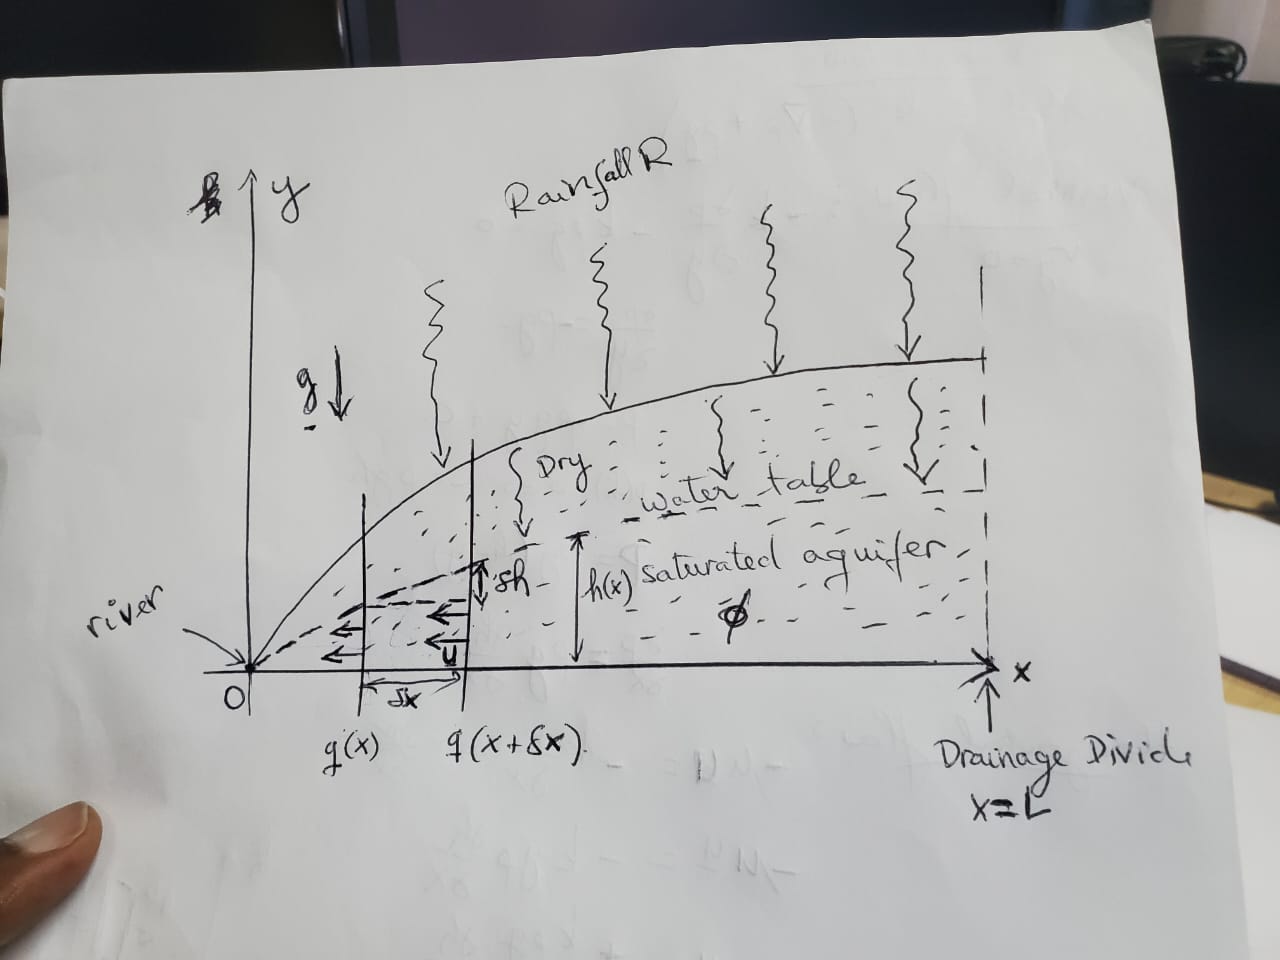 y
Rainfall R
g
Dry
water table
δh
h(x)
saturated aquifer
ϕ
river
u
O
δx
x
q(x)
q(x+δx).
Drainage Divide
x=L